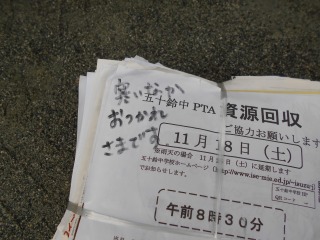 寒いなか
おつかれ
さまです
五十鈴中 PTA 資源回収
ご協力お願いします
11月18日（土）
※雨天の場合 11月
に延期します
五十鈴中学校ホームページ
でお知らせします。
午前8時30分